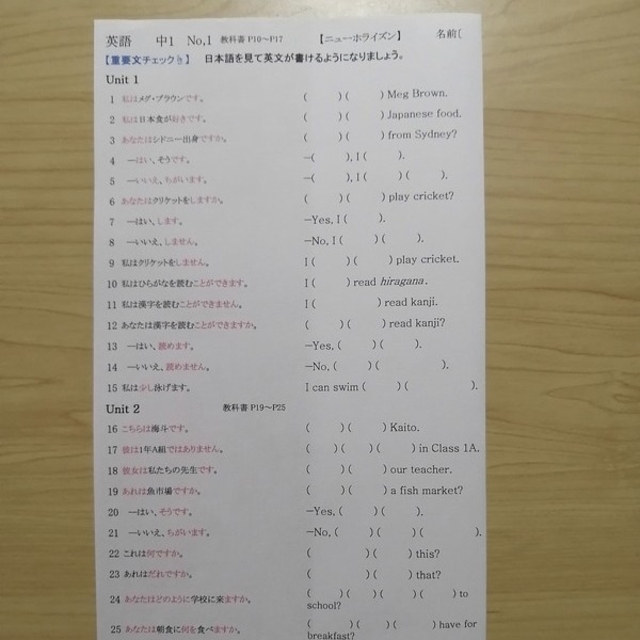 英語 中1 No,1 教科書 P10～P17 【ニューホライズン】 名前〔
【重要文チェック】 日本語を見て英文が書けるようになりましょう。
Unit 1
1 私はメグ・ブラウンです。 ( ) ( ) Meg Brown.
2 私は日本食が好きです。 ( ) ( ) Japanese food.
3 あなたはシドニー出身ですか。 ( ) ( ) from Sydney?
4 ―はい、そうです。 ―( ), I ( ).
5 ―いいえ、ちがいます。 ―( ), I ( ) ( ).
6 あなたはクリケットをしますか。 ( ) ( ) play cricket?
7 ―はい、します。 ―Yes, I ( ).
8 ―いいえ、しません。 ―No, I ( ) ( ).
9 私はクリケットをしません。 I ( ) ( ) play cricket.
10 私はひらがなを読むことができます。 I ( ) read hiragana.
11 私は漢字を読むことができません。 I ( ) read kanji.
12 あなたは漢字を読むことができますか。 ( ) ( ) read kanji?
13 ―はい、読めます。 ―Yes, ( ) ( ).
14 ―いいえ、読めません。 ―No, ( ) ( ).
15 私は少し泳げます。 I can swim ( ) ( ).
Unit 2 教科書 P19～P25
16 こちらは海斗です。 ( ) ( ) Kaito.
17 彼は1年A組ではありません。 ( ) ( ) ( ) in Class 1A.
18 彼女は私たちの先生です。 ( ) ( ) our teacher.
19 あれは魚市場ですか。 ( ) ( ) a fish market?
20 ―はい、そうです。 ―Yes, ( ) ( ).
21 ―いいえ、ちがいます。 ―No, ( ) ( ) ( ).
22 これは何ですか。 ( ) ( ) this?
23 あれはだれですか。 ( ) ( ) that?
24 あなたはどのように学校に来ますか。 ( ) ( ) ( ) ( ) to
school?
25 あなたは朝食に何を食べますか。 ( ) ( ) ( ) have for
breakfast?